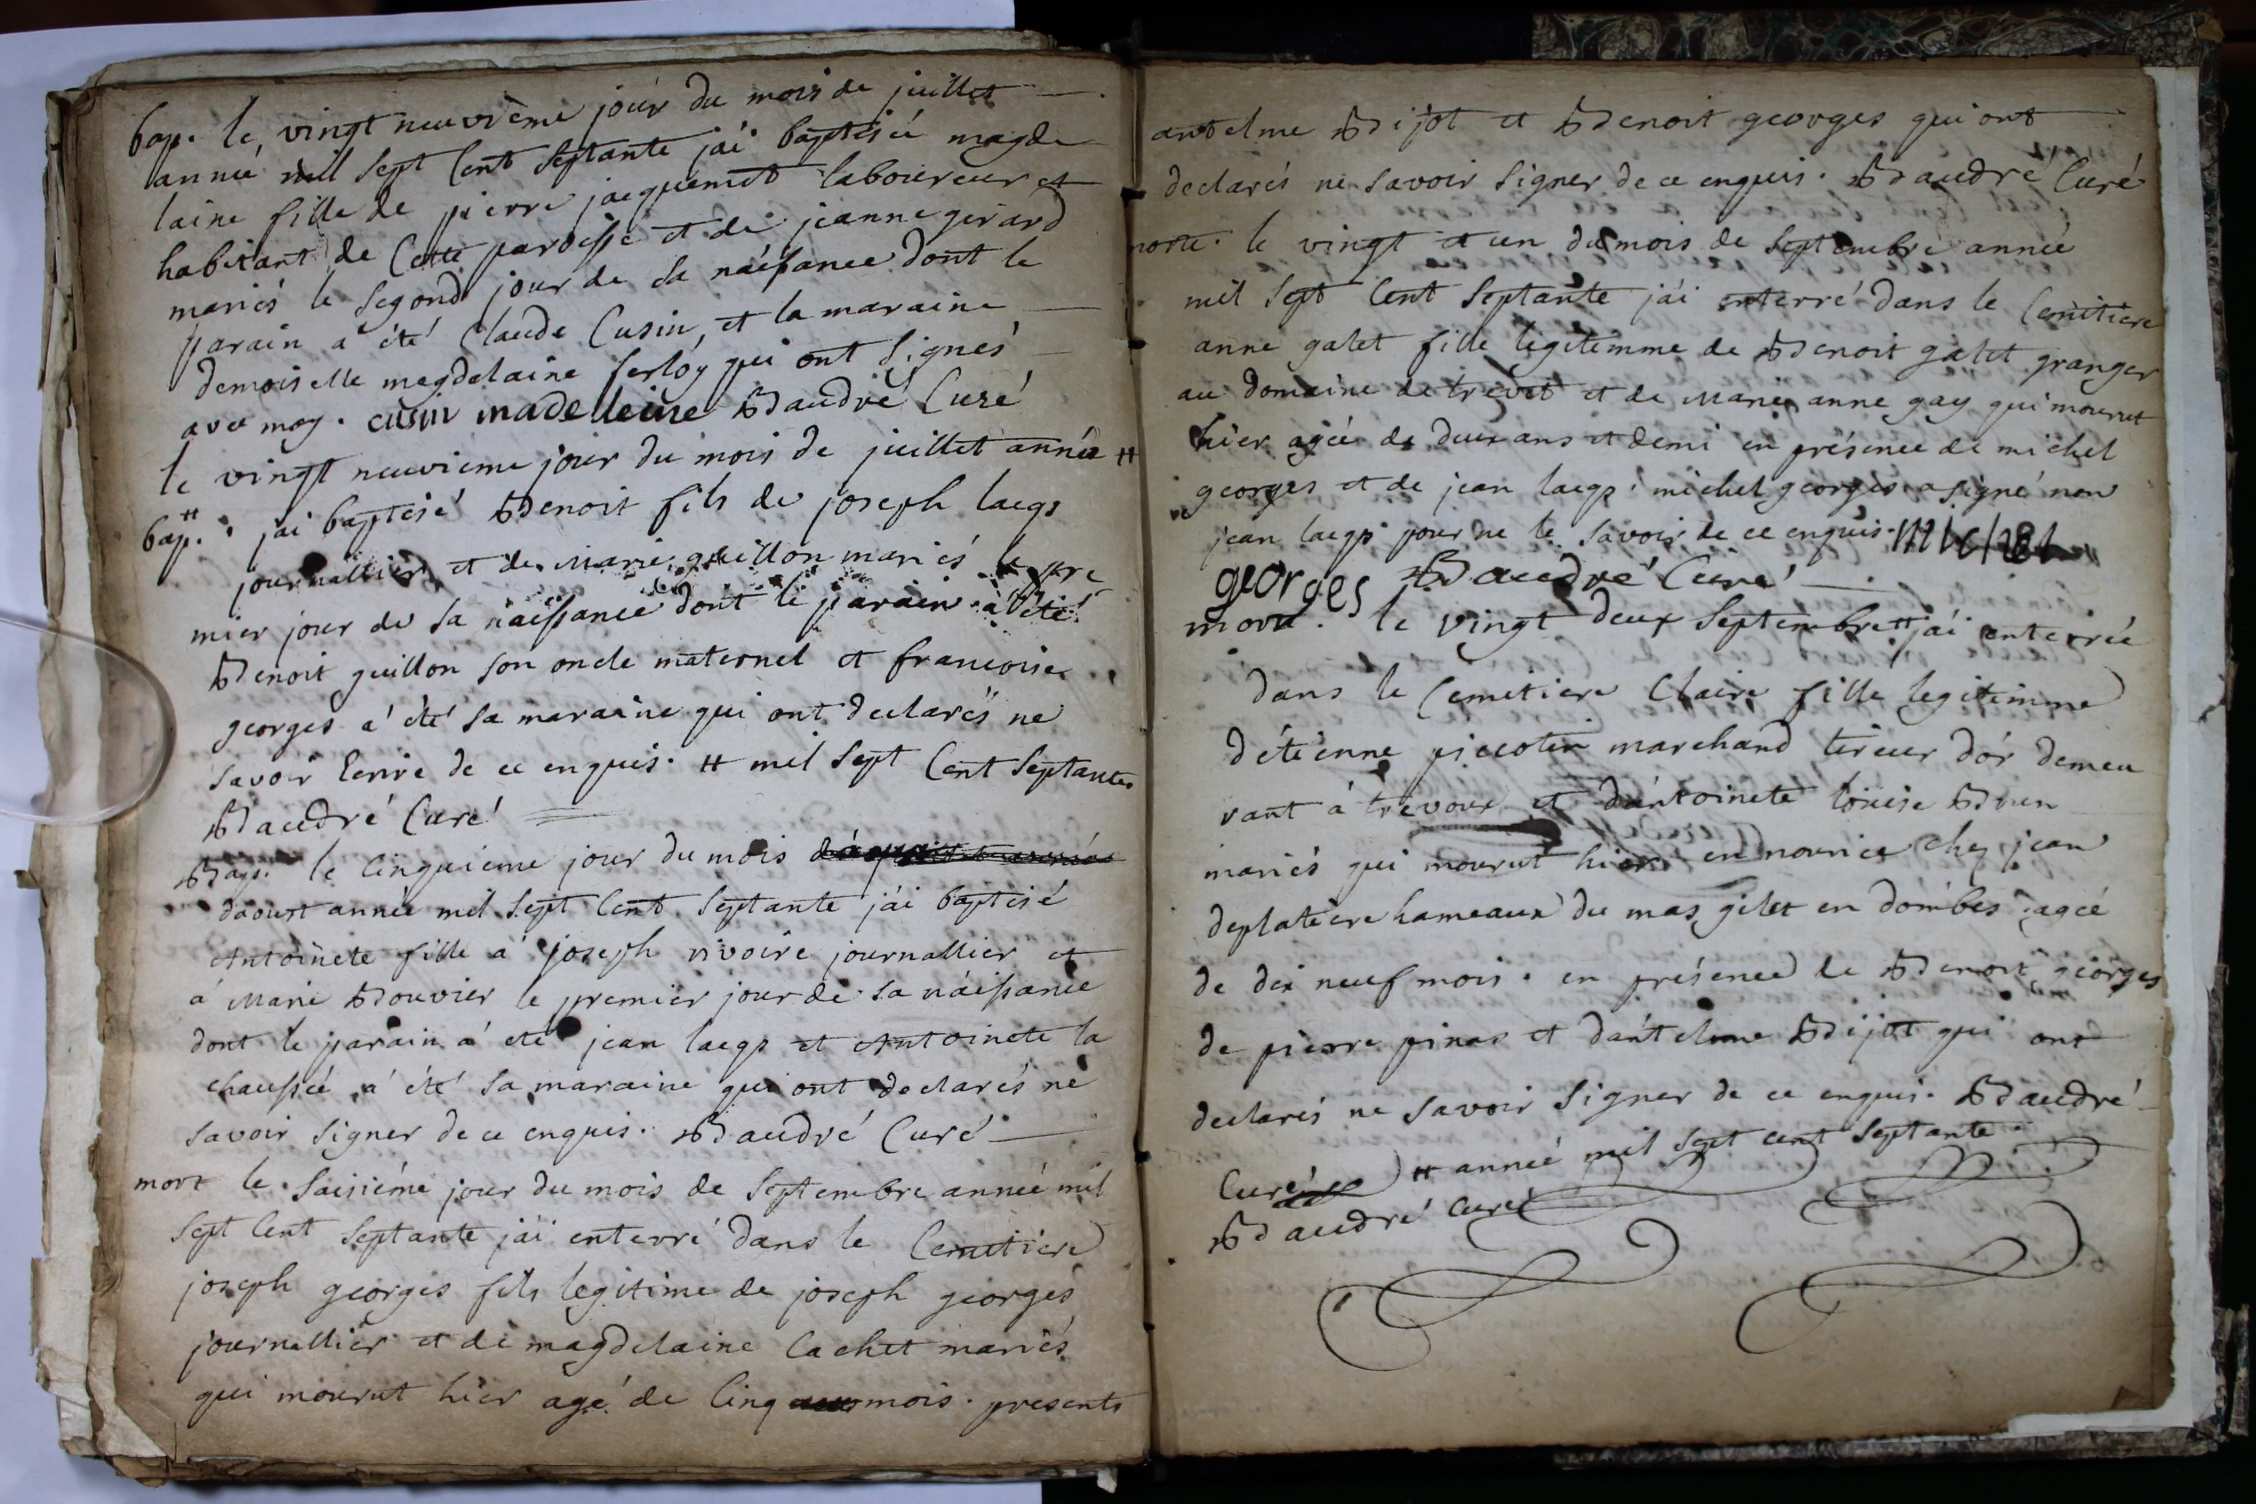 bap. le vingt neuvième jour du mois de juillet
année mil sept Cent septante j'ái baptisée magde
laine fille de pierre jacquemet laboureur et
habitant de Cette paroisse et de jeanne girard
mariés le segond jour de sa náissance dont le
parain a été Claude Cusin, et la maraine
demoiselle magdelaine serloy qui ont signés
avec moy. cusin madelleine Baudré Curé
le vingt neuvieme jour du mois de juillet année #
bap. # j'ai baptisé Benoit fils de joseph laegs
journallier et de Marie guillon mariés le pre
mier jour de sa náissance dont le parain a été
Benoit guillon son oncle maternel et francoise
georges a été sa maraine qui ont declarés ne
savoir Ecrire de ce enquis. # mil sept Cent septante
Baudré Curé
Bap. le Cinquieme jour du mois
daoust année mil sept Cent septante j'ái baptisé
Antoinete fille á joseph rivoire journallier et
á Marie Bouvier le premier jour de sa náissance
dont le parain á eté jean laegs et Antoinete la
chaussée á été sa maraine qui ont declarés ne
savoir signer de ce enquis. Baudré Curé
mort le saisiéme jour du mois de septembre année mil
sept Cent septante j'ái enterré dans le Cemitiere
joseph georges fils legitime de joseph georges
journallier et de magdelaine Cachet mariés
qui mourut hier agé de Cinq mois. presents
antelme Bijot et Benoit georges qui ont
declarés ne savoir signer de ce enquis. Baudré Curé
morte. le vingt et un du mois de septembre année
mil sept Cent septante j'ái enterré dans le Cemitiere
anne galet fille legitemme de Benoit galet granger
au domaine de trevet et de Marie anne gay qui mourut
hier agée de deux ans et demi en présence de michel
georges et de jean laegs. michel georges a signé non
jean laegs pour ne le savoir de ce enquis. michel
georges Baudré Curé
mort. le vingt deux septembre # j'ái enterrée
dans le Cemetiere Claire fille legitimme
d'étienne piccotin marchand tireur d'ór demeu
rant á trevoux et d'ántoinete loüise Brun
mariés qui mourut hier en nourice chez jean
deplatiere hameaux du mas gilet en dómbes agée
de dix neuf mois. en présence de Benoit georges
de pierre pinas et d'ántelme Bijot qui ont
declarés ne savoir signer de ce enquis. Baudré
Curé # année mil sept cent septante
Baudré Curé